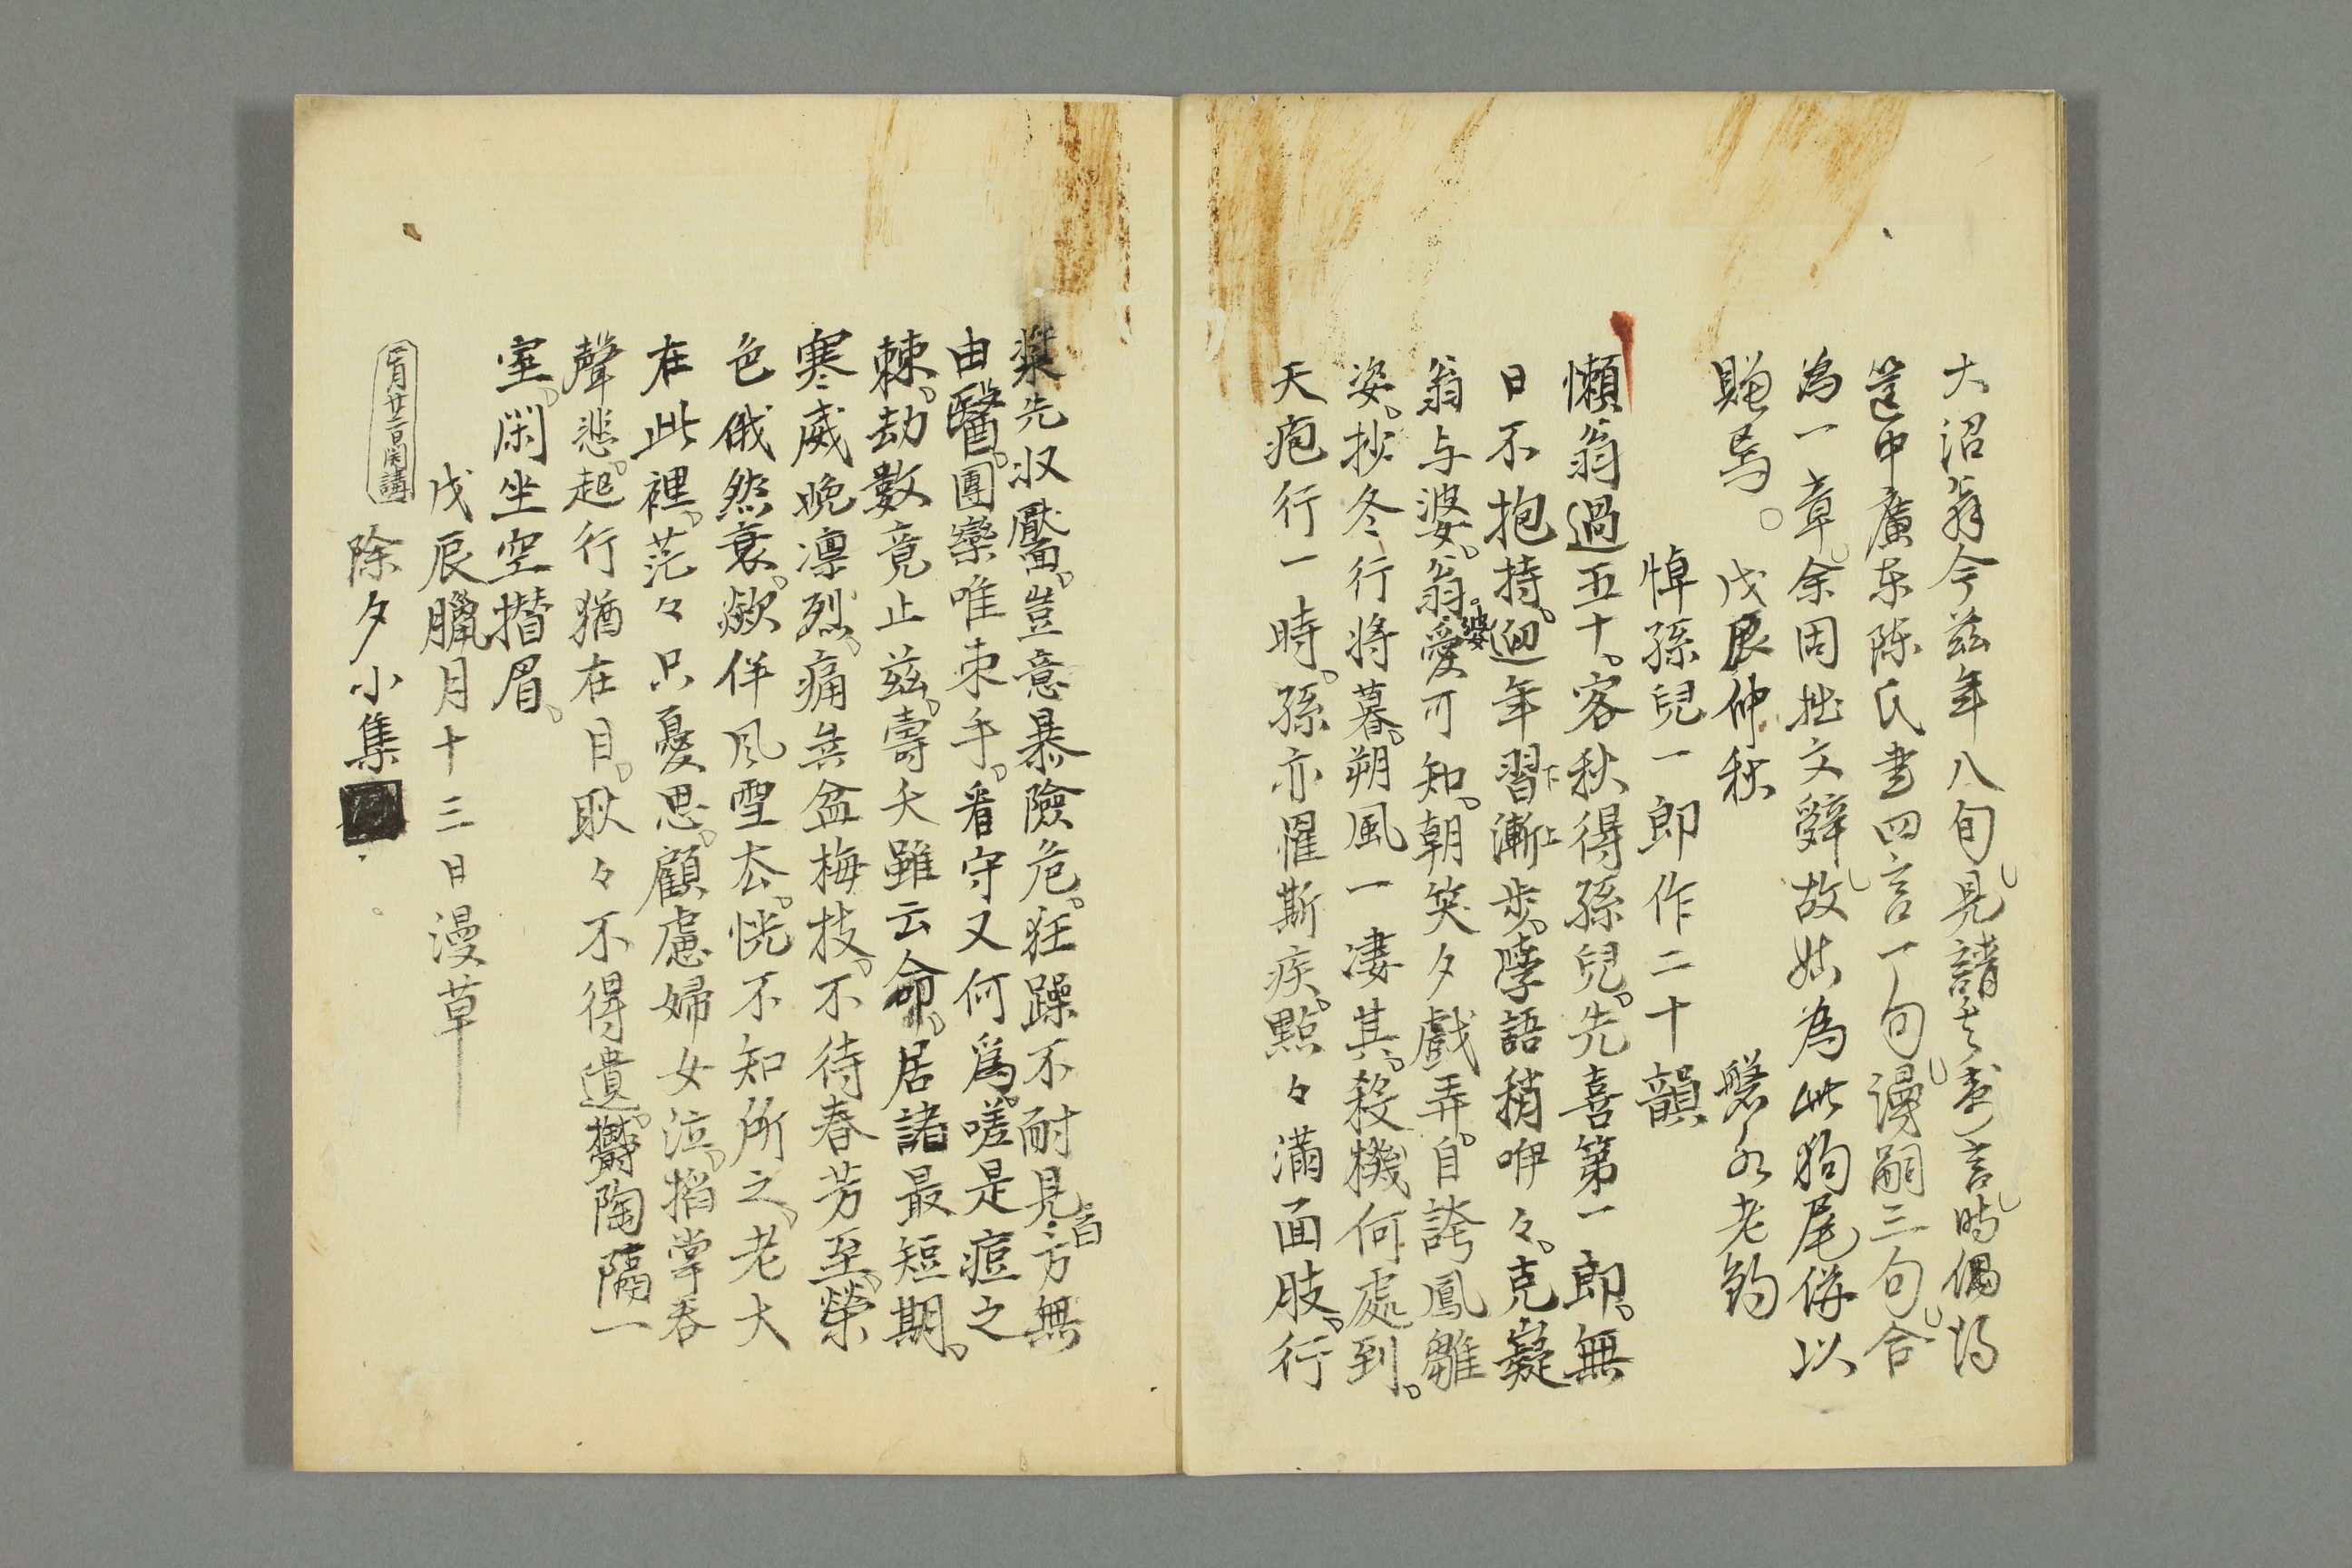 大沼翁今茲年八旬見請其壽言時偶得
篋中廣東陳氏書四言一句漫嗣三句合
為一章余固拙文辭故姑為此狗尾併以
贈焉。戊辰仲秋 磐水老鈎
悼孫兒一郎作二十韻
懶翁過五十。客秋得孫兒。先喜第一郎。無
日不抱持。迎年習漸步。學語稍咿々。克嶷
翁与婆。翁婆愛可知。朝笑夕戲弄。自誇鳳雛
姿。抄冬行將暮。朔風一凄其。殺機何處到。
天疱行一時。孫亦罹斯疾。點々滿面肢。行
漿先収靨。豈意暴險危。狂躁不耐見。百方無
由醫。團欒唯束手。看守又何爲。嗟是痘之
棘。劫數竟止茲。壽夭雖云命。居諸最短期。
寒威晚凛烈。痛無盆梅枝。不待春芳至。榮
色俄然衰。欻伴风雪去。恍不知所之。老大
在此裡。茫々只憂思。顧慮婦女泣。搯掌吞
聲悲。起行猶在目。耿々不得遺。鬱陶隔一
室。閑坐空攢眉。
戊辰臘月十三日漫草
正月廿二日開講
除夕小集